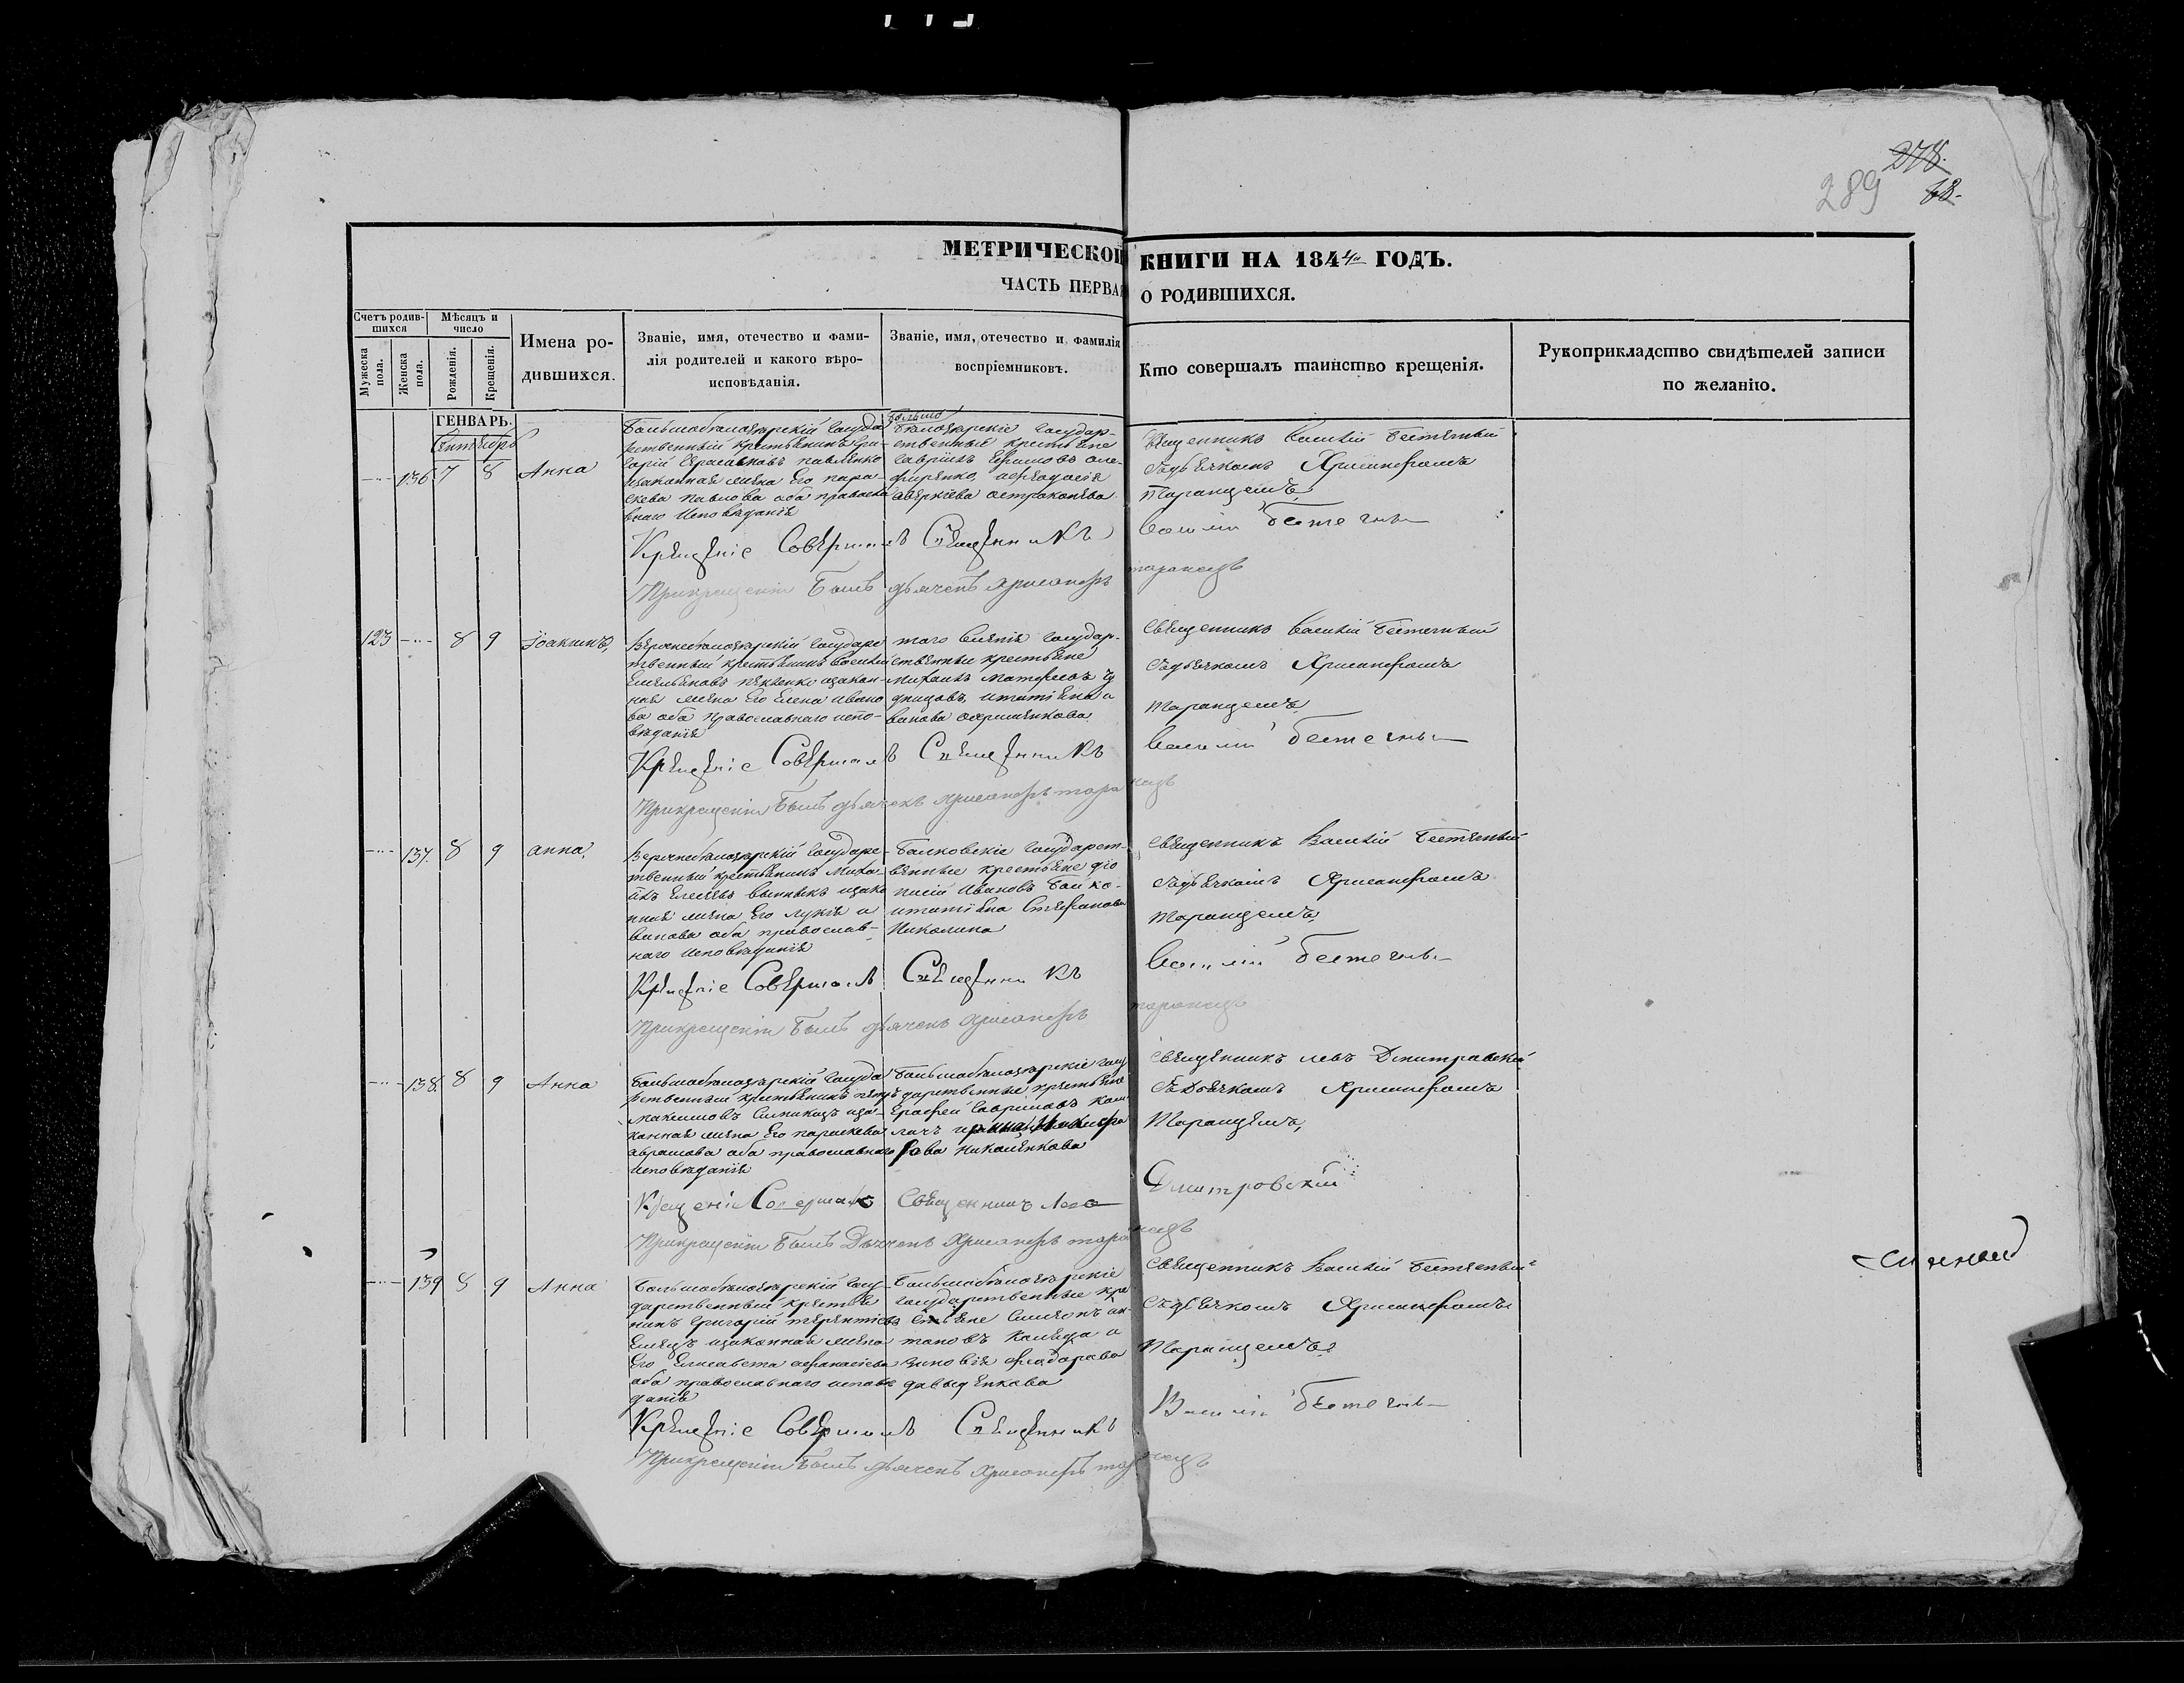 278.
289 68.
МЕТРИЧЕСКОЙ КНИГИ НА 1844й ГОДЪ.
ЧАСТЬ ПЕРВАЯ О РОДИВШИХСЯ.
Счетъ родившихся
Мужеска пола.
Женска пола.
Мѣсяцъ и число
Рожденія.
Крещенія.
Имена родившихся.
Званіе, имя, отечество и фамилія родителей и какого вѣроисповѣданія.
Званіе, имя, отечество и фамилія воспріемниковъ.
Кто совершалъ таинство крещенія.
Рукоприкладство свидѣтелей записи по желанію.
ГЕНВАРЬ.
Сентябрь
136 7 8 Анна
Большобѣлозѣрскій государ
ственный крестьянинъ Гри
горій Герасимовъ павленко
изаконная жена Его пара-
скева павлова оба правосла
внаго исповѣданія
Больше
Бѣлозѣрскіе государ-
ственные крестьяне
Гавріилъ Ефимовъ
Священникъ Василій Бестечный
Съдьячкомъ Хрисанфомъ
Таранцемъ
Крещеніе Совершалъ Священникъ Василій Бестечны
Прикрещеніи Былъ дьячекъ Хрисанфъ таранецъ
123 8 9 Іоакимъ,
Верхнебѣлозѣрскій государс
твенный крестьянинъ Василій
Емельяновъ изакон-
ная жена Его Елена ивано
ва оба православнаго испо-
вѣданія
того селенія государ-
ственные крестьяне
Михаилъ Матфеевъ
итатіяна и
ванова
Священникъ Василій Бестечный
Съдьячкомъ Хрисанфомъ
Таранцемъ
Крещеніе Совершалъ Священникъ Василій Бестечны
Прикрещеніи Былъ дьячекъ Хрисанфъ таранецъ
137. 8 9 анна,
Верхнебѣлозѣрскій государс-
твенный крестьянинъ Миха-
илъ изако
нная жена Его лукія и
ванова оба православ-
наго исповѣданія
Балковскіе государст-
вѣнные крестьяне діо
нисій Ивановъ Бойко-
итатіяна Стефанова
Николина
Священникъ Василій Бестечный
Съдьячкомъ Хрисанфомъ
Таранцемъ
Крещеніе Совершалъ Священникъ Василій Бестечны
Прикрещеніи Былъ дьячекъ Хрисанфъ таранецъ
138. 8 9 Анна
Большобѣлозѣрскій госуда
рственный крестьянинъ петръ
Максимовъ изa-
конная жена Его параскева
абрамова оба православнаго
исповѣданія
Большобѣлозѣрскіе госу
дарственные крестьяне
Ерофей Гавріиловъ
Никифо
рова николенкова
Священникъ левъ Дмитровскій
СъДьячкомъ Хрисанфомъ
Таранцемъ,
Крещеніе Совершалъ Священникъ Левъ Дмитровскій
Прикрещеніи Былъ Дьячекъ Хрисанфъ таранецъ
139 8 9 Анна
Большобѣлозѣрскій госу-
дарственный крестья
нинъ григорій терентіевъ
изаконная жена
Его Елисавета афанасіева
оба православнаго исповѣ
данія
Большобѣлозѣрскіе
государственные кре
стьяне Симеонъ
и
зиновія федорова
давыденкова
Священникъ Василій Бестечный
Съдьячкомъ Хрисанфомъ
Таранцемъ
Крещеніе Совершалъ Священникъ Василій Бестечны
Прикрещеніи Былъ дьячекъ Хрисанфъ таранецъ